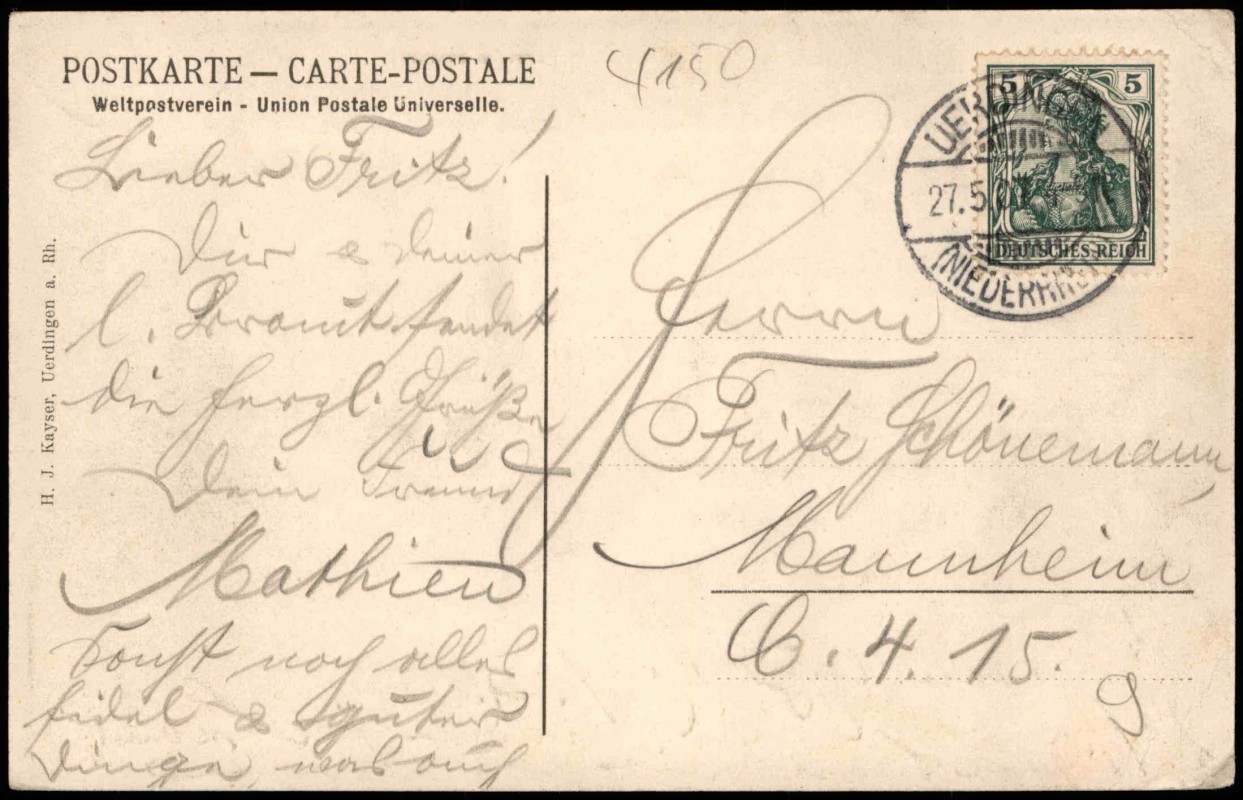 POSTKARTE — CARTE-POSTALE
Weltpostverein - Union Postale Universelle.
4150
5 5
DEUTSCHES REICH
UERDINGEN
27.5.
(NIEDERRH.)
H. J. Kayser, Uerdingen a. Rh.
Lieber Fritz!
Dir & Deiner
l. Braut sendet
die herzl. Grüße
Dein Freund
Mathieu
Sonst noch alles
fidel & guter
Dinge, was auch
Herrn
Fritz Schönemann,
Mannheim
C. 4. 15.
9